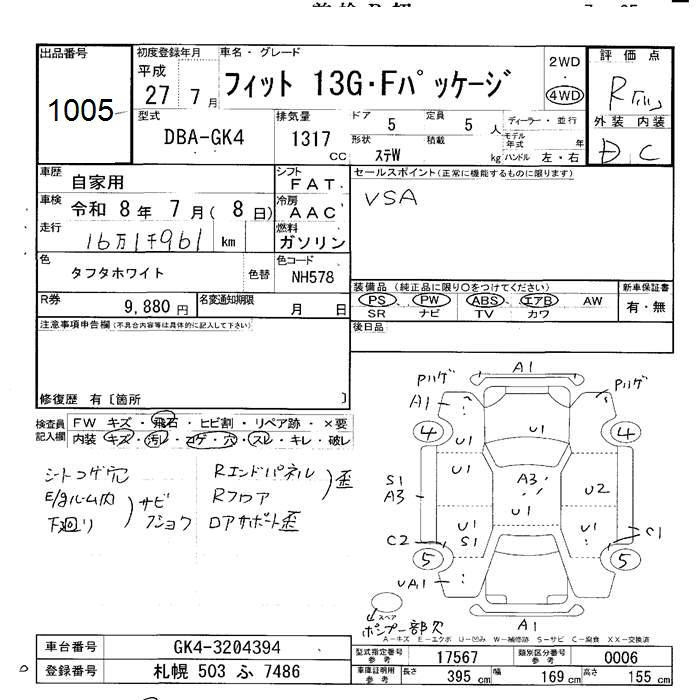 出品番号
1005
初度登録年月
平成
27 7月
車名・グレード
フィット 13G・Fパッケージ
2WD
・
4WD
評価点
R
外装 内装
D C
型式
DBA-GK4
排気量
1317
CC
ドア
5
定員
5 人
形状
ステW
積載
kg
ディーラー・並行
モデル年式 年
ハンドル 左・右
車歴
自家用
シフト
FAT
セールスポイント(正常に機能するものに限ります)
VSA
車検
令和 8年 7月(8日)
冷房
AAC
走行
16万1千961 km
燃料
ガソリン
色
タフタホワイト
色替
色コード
NH578
装備品(純正品に限り○をつけてください)
PS PW ABS エアB AW
SR ナビ TV カワ
新車保証書
有・無
R券
9,880円
名変通知期限
月 日
後日品
注意事項申告欄(不具合内容等は具体的に記入して下さい)
修復歴 有〔箇所 〕
検査員記入欄
FW キズ・飛石・ヒビ割・リペア跡・×要
内装 キズ・汚レ・コゲ・穴・スレ・キレ・破レ
シートコゲ穴
E/gルーム内
下廻り
サビ
フショク
Rエンドパネル
Rフロア
歪
ロアサポート歪
A1
Pハゲ
Pハゲ
A1
4
4
U1
U1
U1
S1
A3
A3
U2
U1
U1
S1
U1
C2
C1
5
5
UA1
スペア
ポンプ一部欠
A1
A-キズ E-エクボ U-凹み W-補修跡 S-サビ C-腐食 XX-交換済
車台番号
GK4-3204394
型式指定番号
参考
17567
類別区分番号
参考
0006
登録番号
札幌 503 ふ 7486
車庫証明用
参考
長さ
395 cm
幅
169 cm
高さ
155 cm